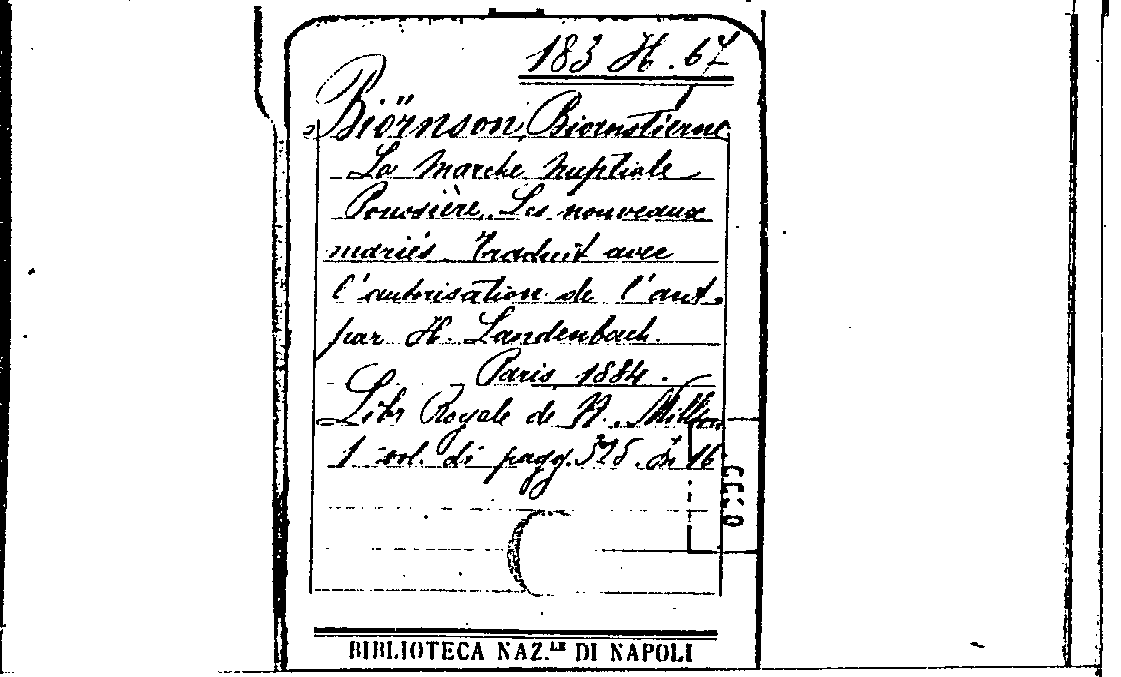 183 H. 67
Biörnson, Biornstierne
La Marche Nuptiale
Poussière. Les nouveaux
mariés. Traduit avec
l'autorisation de l'aut.
par H. Landenbach.
Paris, 1884.
Libr Royale de
1 vol. di pagg. 325. in 16
BIBLIOTECA NAZ.LE DI NAPOLI